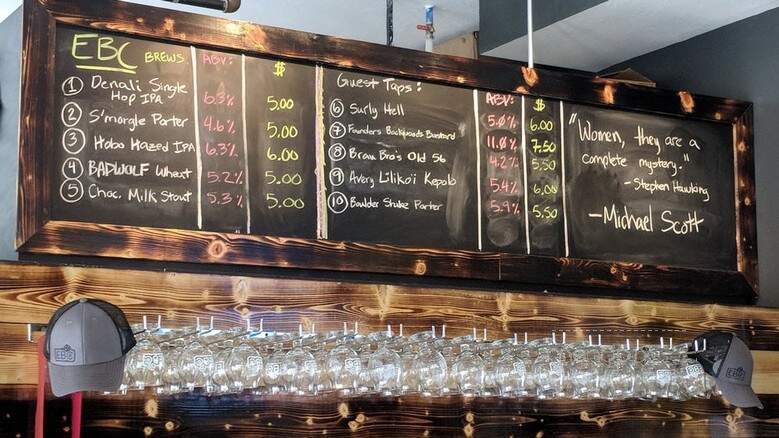 EBC BREWS ABV: $
1 Denali Single Hop IPA 6.3% 5.00
2 S'morgle Porter 4.6% 5.00
3 Hobo Hazed IPA 6.3% 6.00
4 BADWOLF Wheat 5.2% 5.00
5 Choc. Milk Stout 5.3% 5.00
Guest Taps: ABV: $
6 Surly Hell 5.0% 6.00
7 Founders Backwoods Bastard 11.0% 7.50
8 Brau Bro's Old 56 4.2% 5.50
9 Avery Liliko'i Kepolo 5.4% 6.00
10 Boulder Shake Porter 5.9% 5.50
"Women, they are a
complete mystery."
- Stephen Hawking
- Michael Scott
EBC
EBC